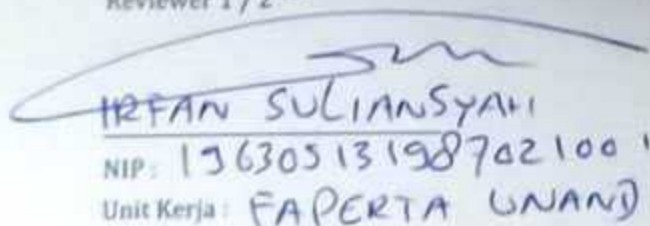 Reviewer 1 / 2
IRFAN SULIANSYAH
NIP : 19630513198702100 1
Unit Kerja : FAPERTA UNAND